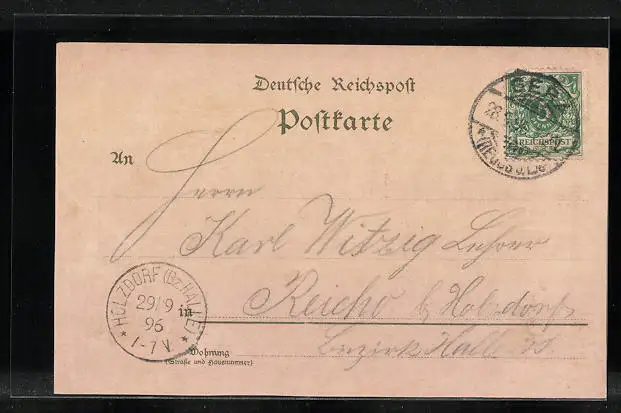 Deutsche Reichspost
Postkarte
GERA
5
REICHSPOST
An
Herrn
Karl Witzig Lehrer
HOLZDORF (Bz. HALLE)
29/9
96
1-7 V
in
Reicho b/ Holzdorf
Bezirk Halle
Wohnung
(Straße und Hausnummer)